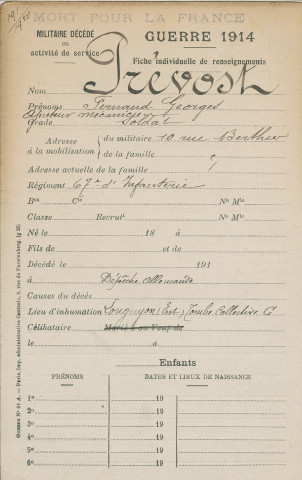 MORT POUR LA FRANCE
MILITAIRE DÉCÉDÉ
en
activité de service
GUERRE 1914
Fiche individuelle de renseignements
Nom Prevost
Prénoms Fernand Georges
Ajusteur mécanicien
Grade Soldat
Adresse à la mobilisation
du militaire 10 rue Berthier
de la famille "
Adresse actuelle de la famille "
Régiment 67e d'Infanterie
Bon Cie No Mle
Classe Recrut. No Mle
Né le 18 à
Fils de et de
Décédé le 191
à Dépêche allemande
Causes du décès
Lieu d'inhumation Longuyon (Est) Tombe Collective C
Célibataire Marié à ou Veuf de
le à
Enfants
PRÉNOMS DATES ET LIEUX DE NAISSANCE
1o 19
2o 19
3o 19
4o 19
5o 19
6o 19